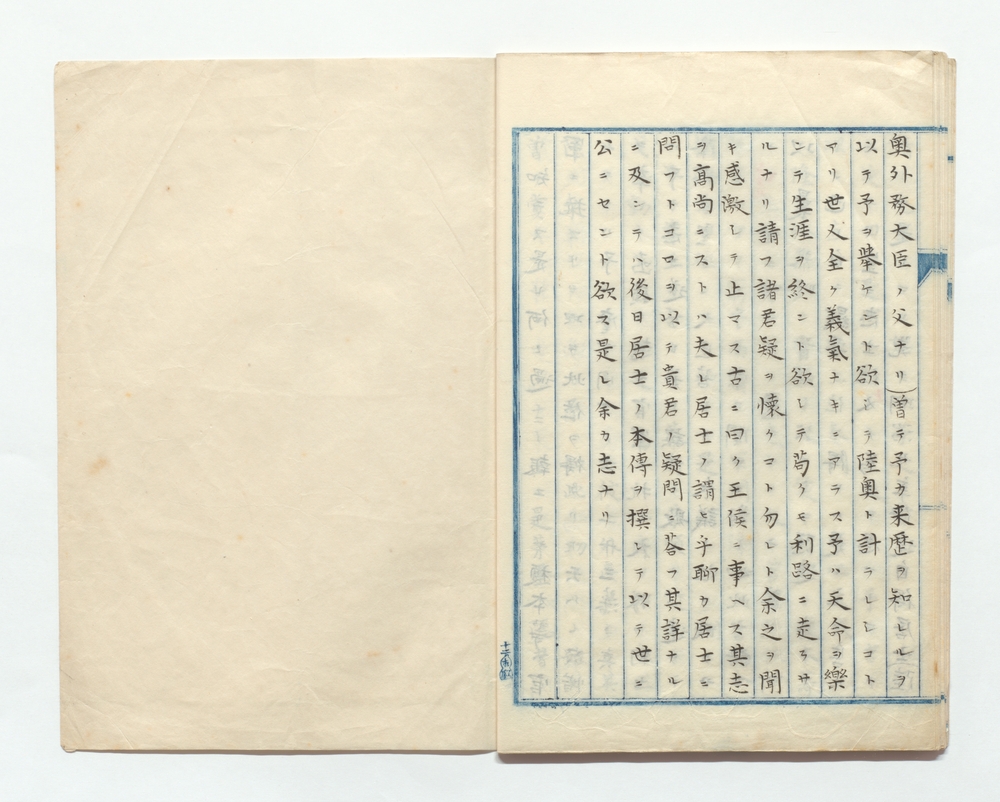 奥外務大臣ノ父ナリ）曽テ予カ来歴ヲ知レルヲ
以テ予ヲ挙ケント欲シテ陸奥ト計テレシコト
アリ世又全ク義氣ナキニアラス予ハ天命ヲ樂
ンテ生涯ヲ終ント欲シテ苟クモ利路ニ走ラサ
ルナリ請フ諸君疑ヲ懐クコト勿レト余之ヲ聞
キ感激シテ止マス古ニ曰ク王侯ニ事ヘス其志
ヲ高尚ニストハ夫レ居士ノ謂乎聊カ居士ニ
問フトコロヲ以テ貴君ノ疑問ニ荅フ其詳ナル
ニ及ンテハ後日居士ノ本傳ヲ撰シテ以テ世ニ
公ニセント欲ス是レ余カ志ナリ